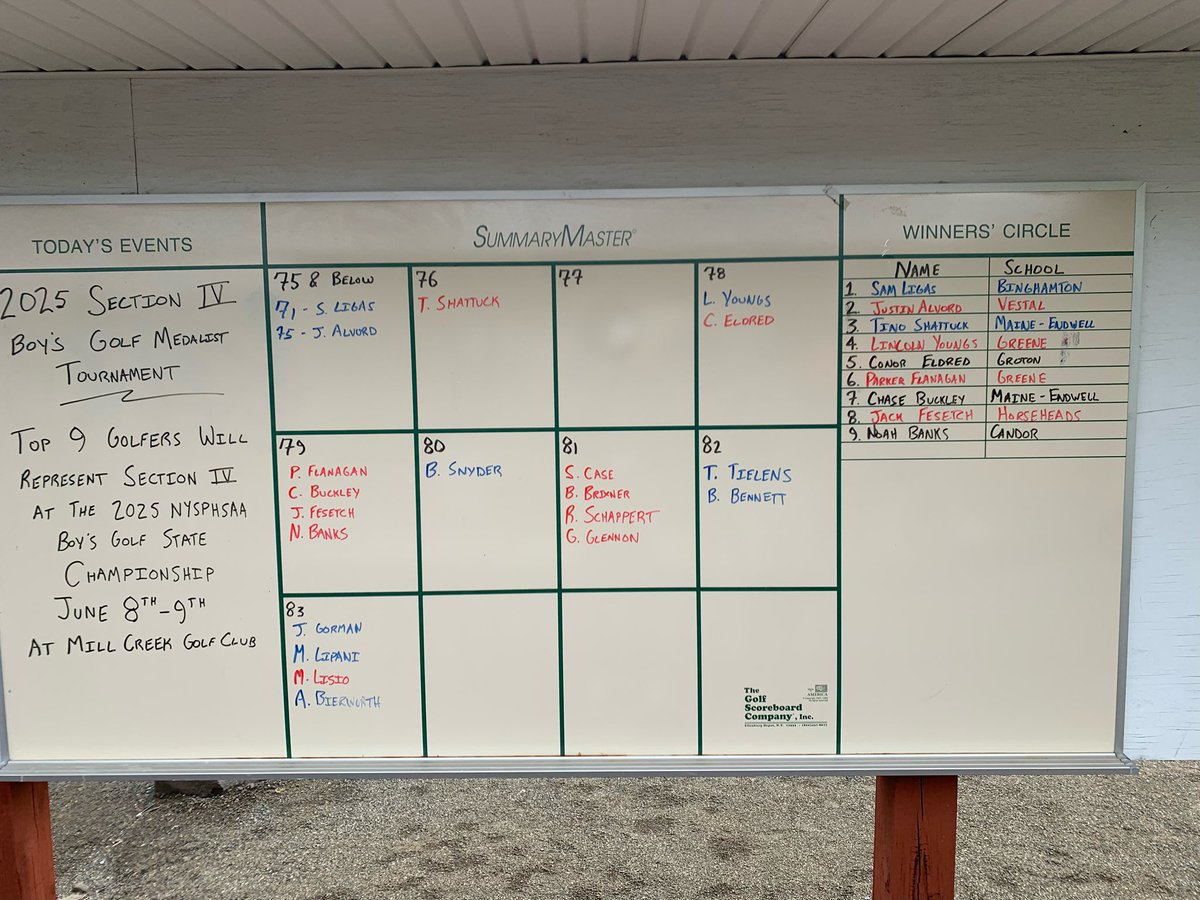 TODAY'S EVENTS
2025 SECTION IV
BOY'S GOLF MEDALIST
TOURNAMENT
TOP 9 GOLFERS WILL
REPRESENT SECTION IV
AT THE 2025 NYSPHSAA
BOY'S GOLF STATE
CHAMPIONSHIP
JUNE 8TH-9TH
AT MILL CREEK GOLF CLUB
SUMMARYMASTER®
75 & BELOW
71 - S. LIGAS
75 - J. ALVORD
76
T. SHATTUCK
77
78
L. YOUNGS
C. ELDRED
79
P. FLANAGAN
C. BUCKLEY
J. FESETCH
N. BANKS
80
B. SNYDER
81
S. CASE
B. BRIXNER
R. SCHAPPERT
G. GLENNON
82
T. TIELENS
B. BENNETT
83
J. GORMAN
M. LIPANI
M. LISIO
A. BIERWORTH
The
Golf
Scoreboard
Company, Inc.
WINNERS' CIRCLE
NAME SCHOOL
1. SAM LIGAS BINGHAMTON
2. JUSTIN ALVORD VESTAL
3. TINO SHATTUCK MAINE-ENDWELL
4. LINCOLN YOUNGS GREENE
5. CONOR ELDRED GROTON
6. PARKER FLANAGAN GREENE
7. CHASE BUCKLEY MAINE-ENDWELL
8. JACK FESETCH HORSEHEADS
9. NOAH BANKS CANDOR